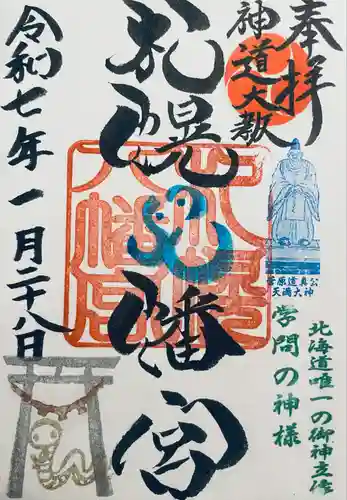 奉拝
神道大教
菅原道真公
天満大神
学問の神様
北海道唯一の御神立像
札幌八幡宮
八幡宮
令和七年一月二十八日